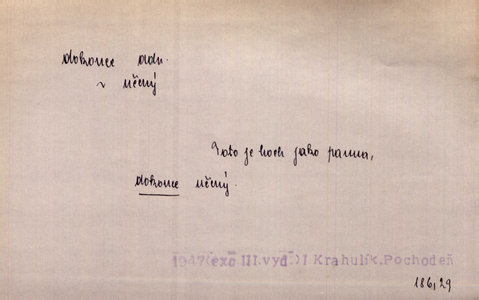 dokonce adv.
v učený
Zato je hoch jako panna,
dokonce učený.
1947(exc III.vyd.)I Krahulík,Pochodeň
186,29